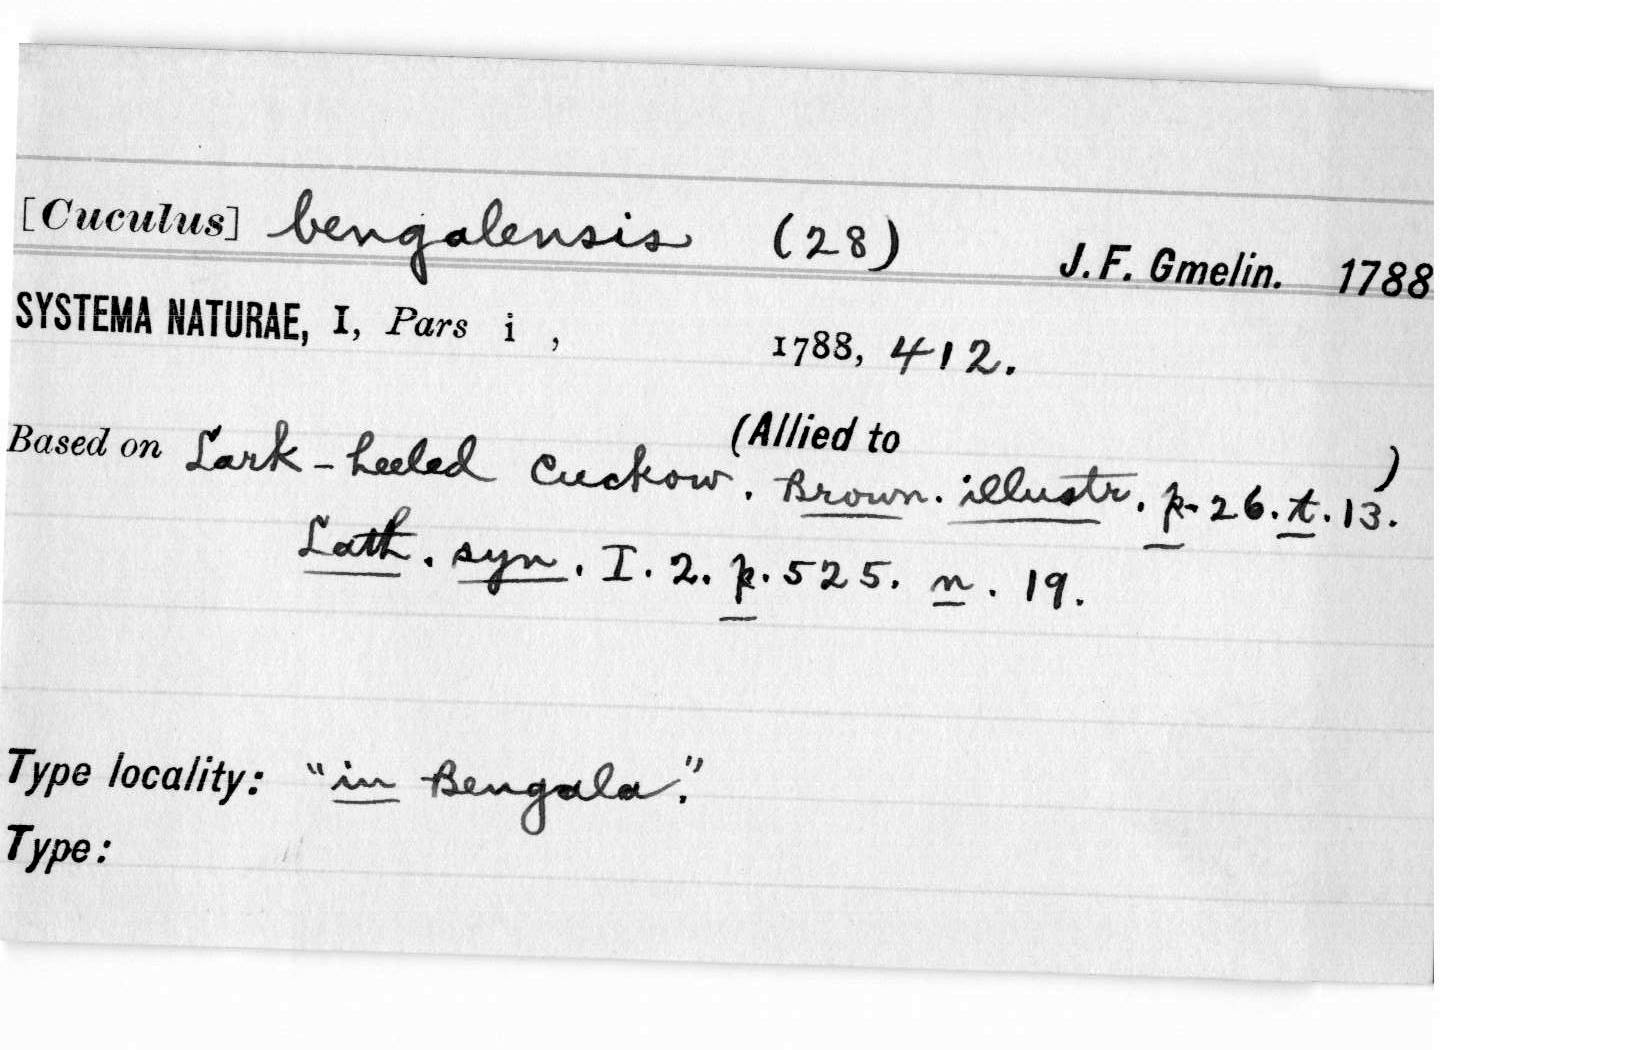 [Cuculus] bengalensis (28) J. F. Gmelin. 1788
SYSTEMA NATURAE, I, Pars i , 1788, 412.
(Allied to )
Based on Lark-heeled Cuckow. Brown. illustr. p. 26. t. 13.
Lath. syn. I. 2. p. 525. n. 19.
Type locality: "in Bengala."
Type: